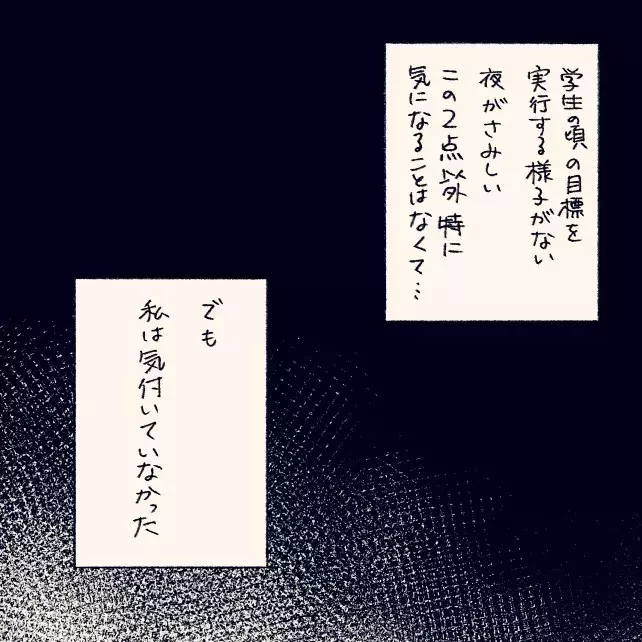 学生の頃の目標を
実行する様子がない
夜がさみしい
この2点以外特に
気になることはなくて…
でも
私は気付いていなかった